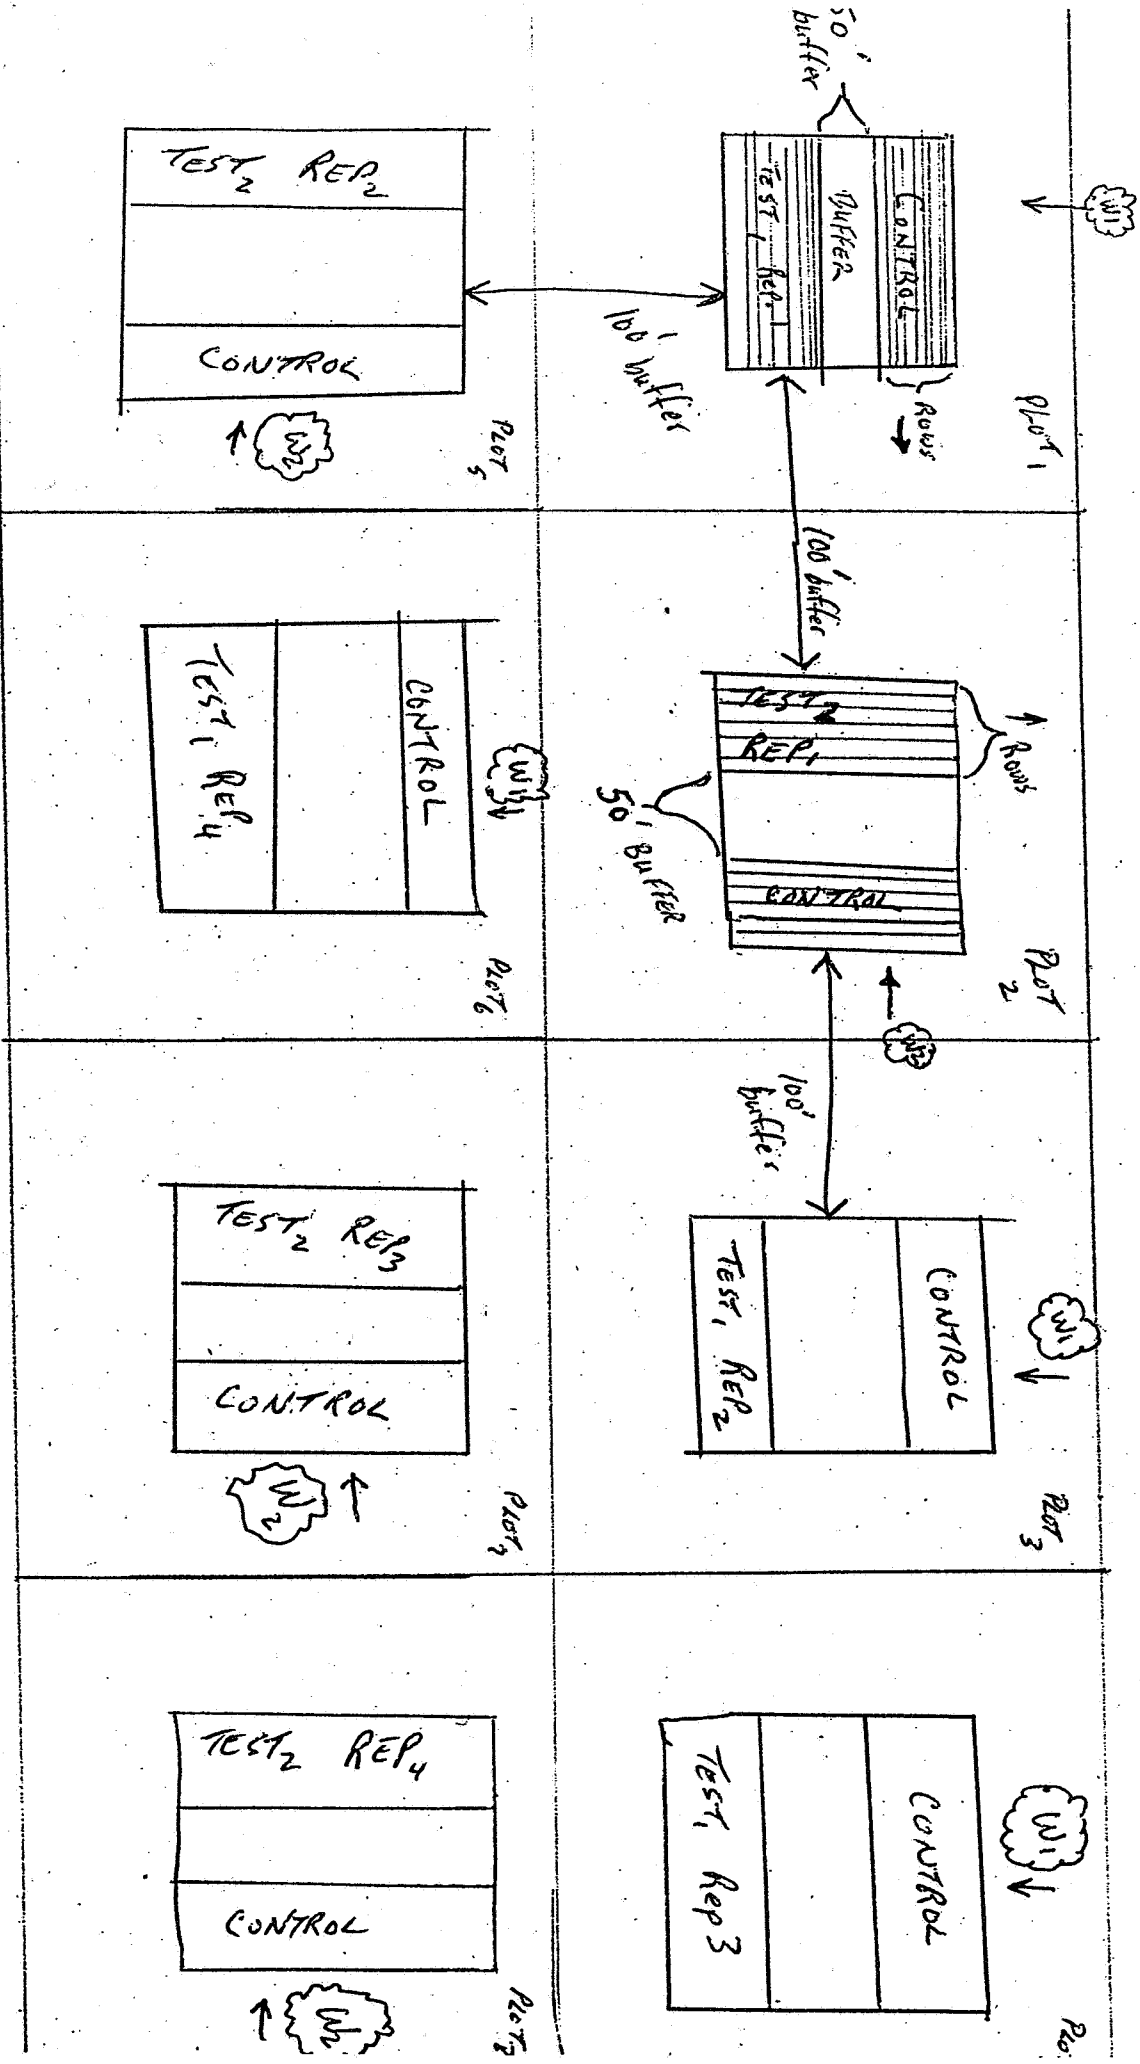 PLOT 1
W1
ROWS
CONTROL
BUFFER
TEST 1 Rep. 1
50' buffer
100' buffer
100' buffer
PLOT 2
ROWS
TEST 2
REP 1
CONTROL
50' BUFFER
W2
100' buffer
PLOT 3
W1
CONTROL
TEST 1 REP 2
W1
CONTROL
TEST 1 Rep 3
PLOT 5
TEST 2 REP 2
CONTROL
W2
PLOT 6
W1
CONTROL
TEST 1 REP 4
PLOT 7
TEST 2 REP 3
CONTROL
W2
PLOT 8
TEST 2 REP 4
CONTROL
W2